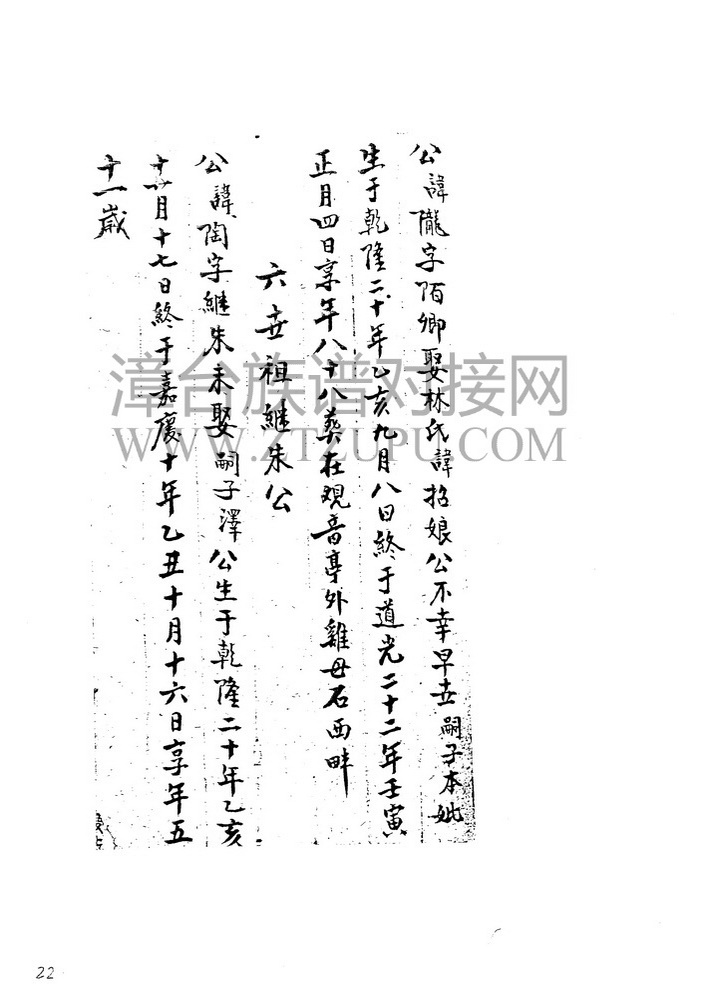 公諱隴字陌卿娶林氏諱招娘公不幸早世嗣子本妣
生于乾隆二十年乙亥九月八日終于道光二十二年壬寅
正月四日享年八十八葬在觀音亭外雞母石西畔
六世祖継朱公
公諱陶字継朱未娶嗣子澤公生于乾隆二十年乙亥
月十七日終于嘉慶十年乙丑十月十六日享年五
十一歲
漳台族谱对接网
WWW.ZTZUPU.COM
22